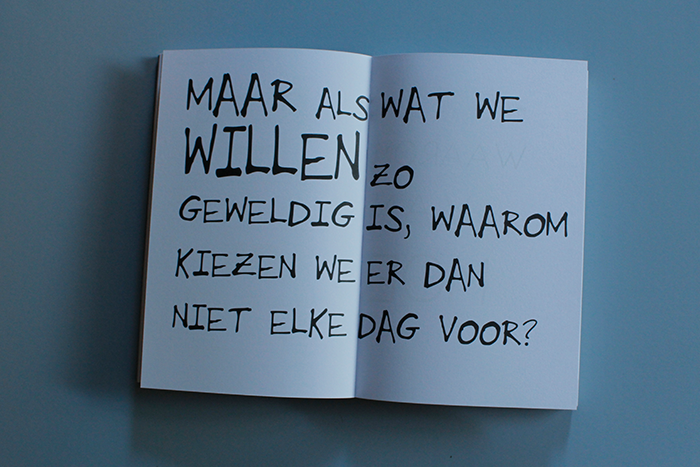 MAAR ALS WAT WE
WILLEN ZO
GEWELDIG IS, WAAROM
KIEZEN WE ER DAN
NIET ELKE DAG VOOR?